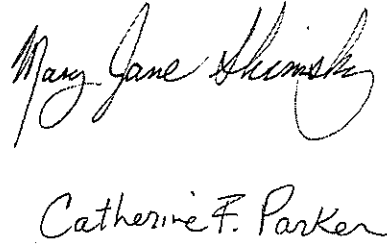 Mary Jane Shimsky
Catherine F. Parker